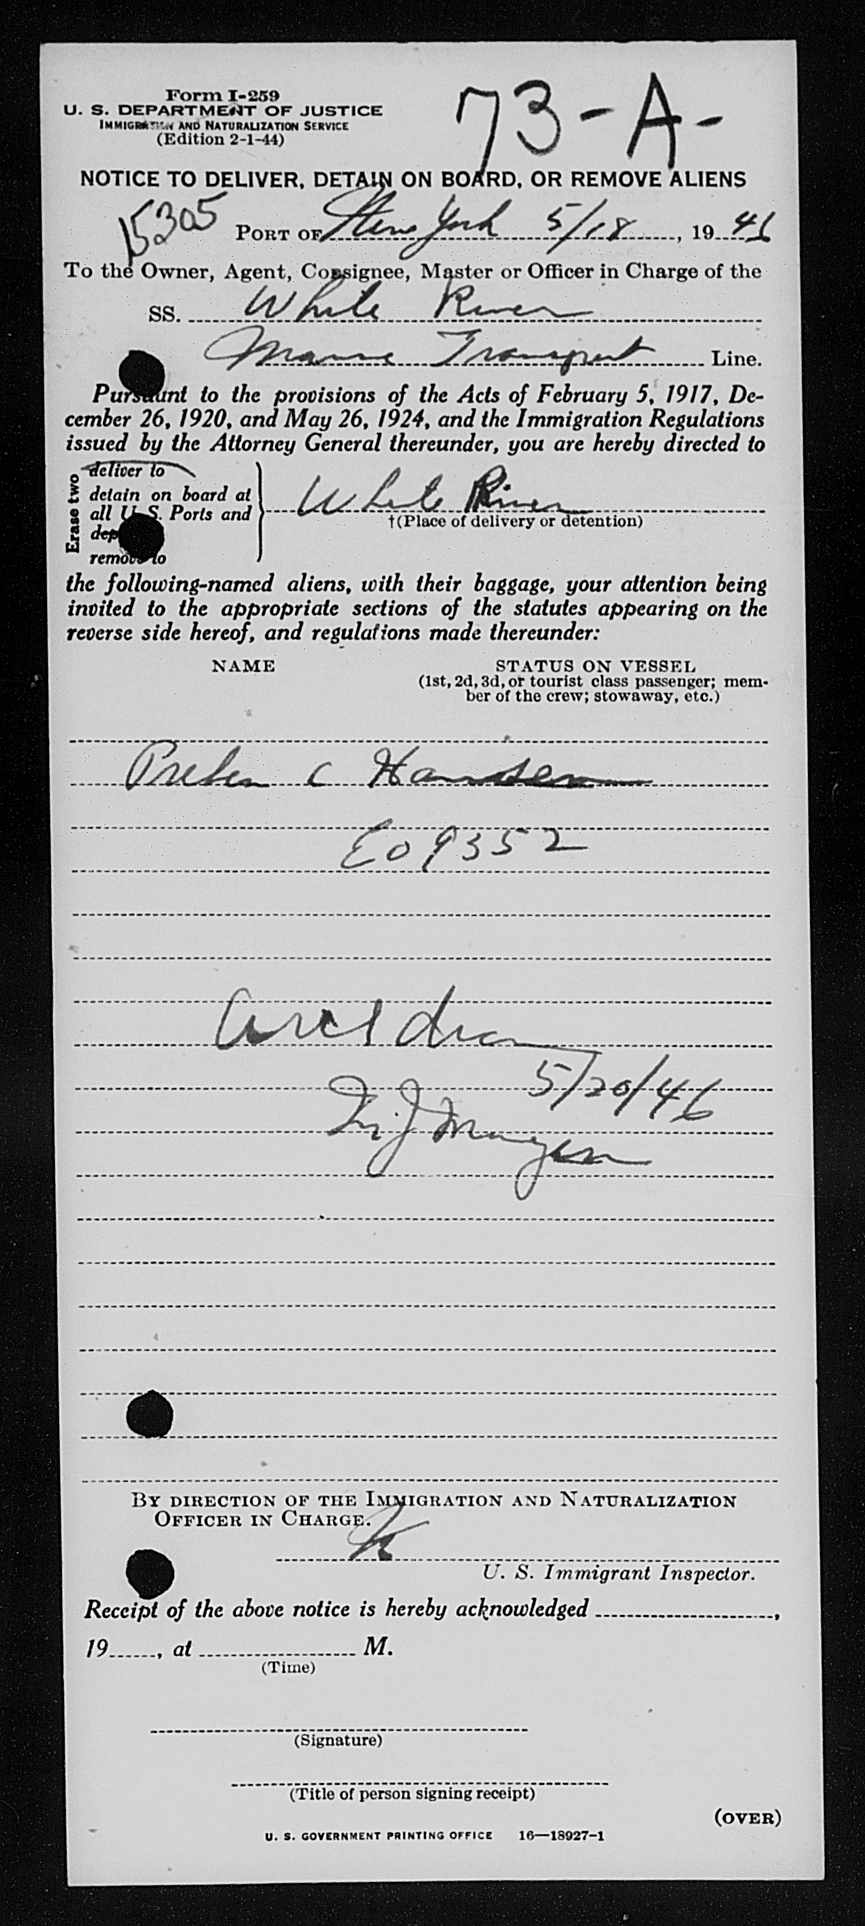 Form I-259
73-A-
U. S. DEPARTMENT OF JUSTICE
IMMIGRATION AND NATURALIZATION SERVICE
(Edition 2-1-44)
NOTICE TO DELIVER, DETAIN ON BOARD, OR REMOVE ALIENS
15305
PORT OF New York 5/18, 1946
To the Owner, Agent, Consignee, Master or Officer in Charge of the
SS. White River
Marine Transport Line.
Pursuant to the provisions of the Acts of February 5, 1917, De-
cember 26, 1920, and May 26, 1924, and the Immigration Regulations
issued by the Attorney General thereunder, you are hereby directed to
Erase two
deliver to
detain on board at
all U. S. Ports and
remove to
White River
†(Place of delivery or detention)
the following-named aliens, with their baggage, your attention being
invited to the appropriate sections of the statutes appearing on the
reverse side hereof, and regulations made thereunder:
NAME
STATUS ON VESSEL
(1st, 2d, 3d, or tourist class passenger; mem-
ber of the crew; stowaway, etc.)
Preben C Hansen
E09352
5/20/46
BY DIRECTION OF THE IMMIGRATION AND NATURALIZATION
OFFICER IN CHARGE.
U. S. Immigrant Inspector.
Receipt of the above notice is hereby acknowledged ,
19 , at M.
(Time)
(Signature)
(Title of person signing receipt)
(OVER)
U. S. GOVERNMENT PRINTING OFFICE 16—18927-1